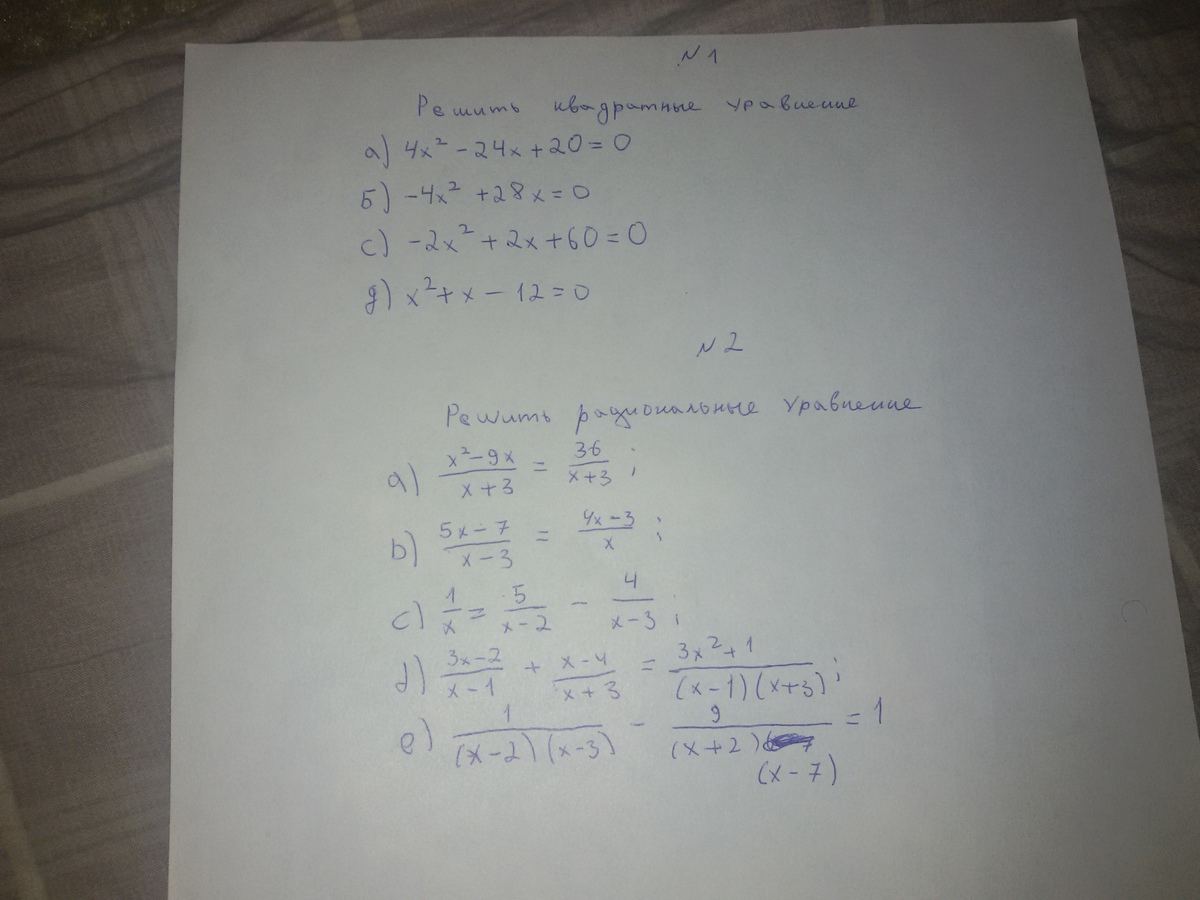 № 1
Решить квадратные уравнение
а) 4x² - 24x + 20 = 0
Б) -4x² + 28x = 0
с) -2x² + 2x + 60 = 0
д) x² + x - 12 = 0
№ 2
Решить рациональные уравнение
a) (x² - 9x)/(x + 3) = 36/(x + 3) ;
b) (5x - 7)/(x - 3) = (4x - 3)/x ;
c) 1/x = 5/(x - 2) - 4/(x - 3) ;
d) (3x - 2)/(x - 1) + (x - 4)/(x + 3) = (3x² + 1)/((x - 1)(x + 3)) ;
e) 1/((x - 2)(x - 3)) - 9/((x + 2)(x - 7)) = 1